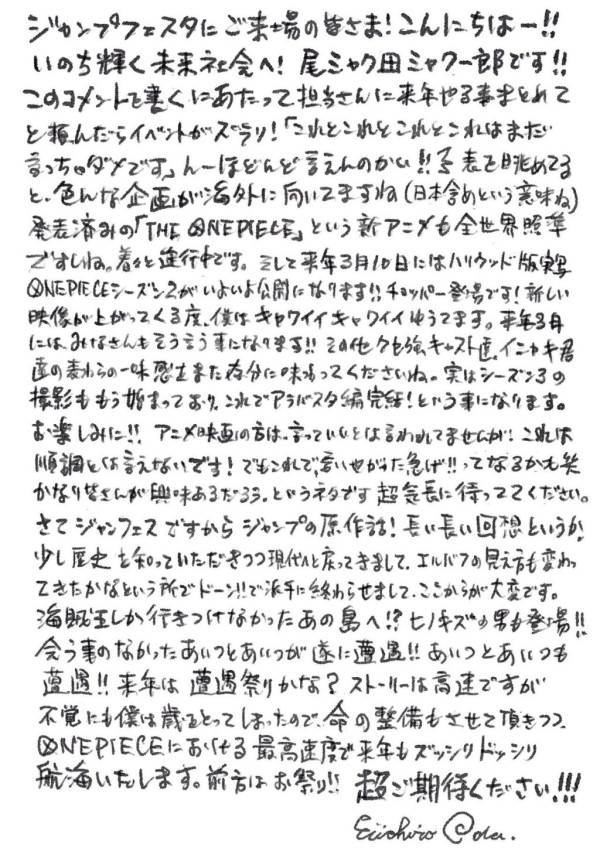 ジャンプフェスタにご来場の皆さま！こんにちはー!!
いのち輝く未来社会へ！尾ミャク田ミャク一郎です!!
このコメントを書くにあたって担当さんに来年やる事まとめて
と頼んだらイベントがズラリ！「これとこれとこれとこれはまだ
言っちゃダメです」んーほどんど言えんのかい!!予表を眺めてる
と、色んな企画が海外に向いてますね(日本含めという意味ね)
発表済みの「THE ONE PIECE」という新アニメも全世界照準
ですしね。着々と進行中です。そして来年3月10日にはハリウッド版実写
ONE PIECEシーズン2がいよいよ公開になります!!チョッパー登場です！新しい
映像が上がってくる度、僕はキャワイイキャワイイゆうてます。来年3月
には、みなさんもそう言う事になります!!その他クセ強キャスト達、イニャキ君
達の麦わらの一味感もまた存分に味わってくださいね。実はシーズン3の
撮影ももう始まっており、これでアラバスタ編完結！という事になります。
お楽しみに!!アニメ映画の方は、言っていいとは言われてませんが！これは
順調とは言えないです！でもこれで、言いやがった急げ!!ってなるかも笑
かなり皆さんが興味あるだろう、というネタです 超気長に待っててください。
さてジャンフェスですからジャンプの原作話！長い長い回想というか、
少し歴史を知っていただきつつ現代へと戻ってきまして、エルバフの見え方も変わっ
てきたかなという所でドーン!!で派手に終わらせまして、ここからが大変です。
海賊王しか行きつけなかったあの島へ!?ヒノキズの男も登場!!
会う事のなかったあいつとあいつが遂に遭遇!!あいつとあいつも
遭遇!!来年は遭遇祭りかな？ストーリーは高速ですが
不覚にも僕は歳をとってしまったので、命の整備もさせて頂きつつ、
ONE PIECEにおける最高速度で来年もズッシリドッシリ
航海いたします。前方はお祭り!!超ご期待ください!!!
Eiichiro Oda.